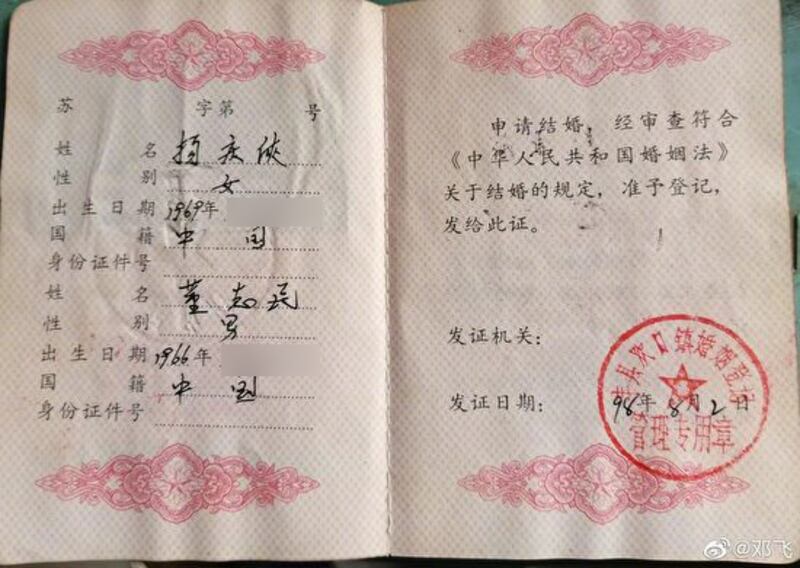 苏 字第 号
姓 名 杨庆侠
性 别 女
出生日期 1969年
国 籍 中 国
身份证件号
姓 名 董志民
性 别 男
出生日期 1966年
国 籍 中 国
身份证件号
申请结婚，经审查符合
《中华人民共和国婚姻法》
关于结婚的规定，准予登记，
发给此证。
发证机关：
发证日期： 98年8月2日
丰县欢口镇婚姻登记
管理专用章
@邓飞